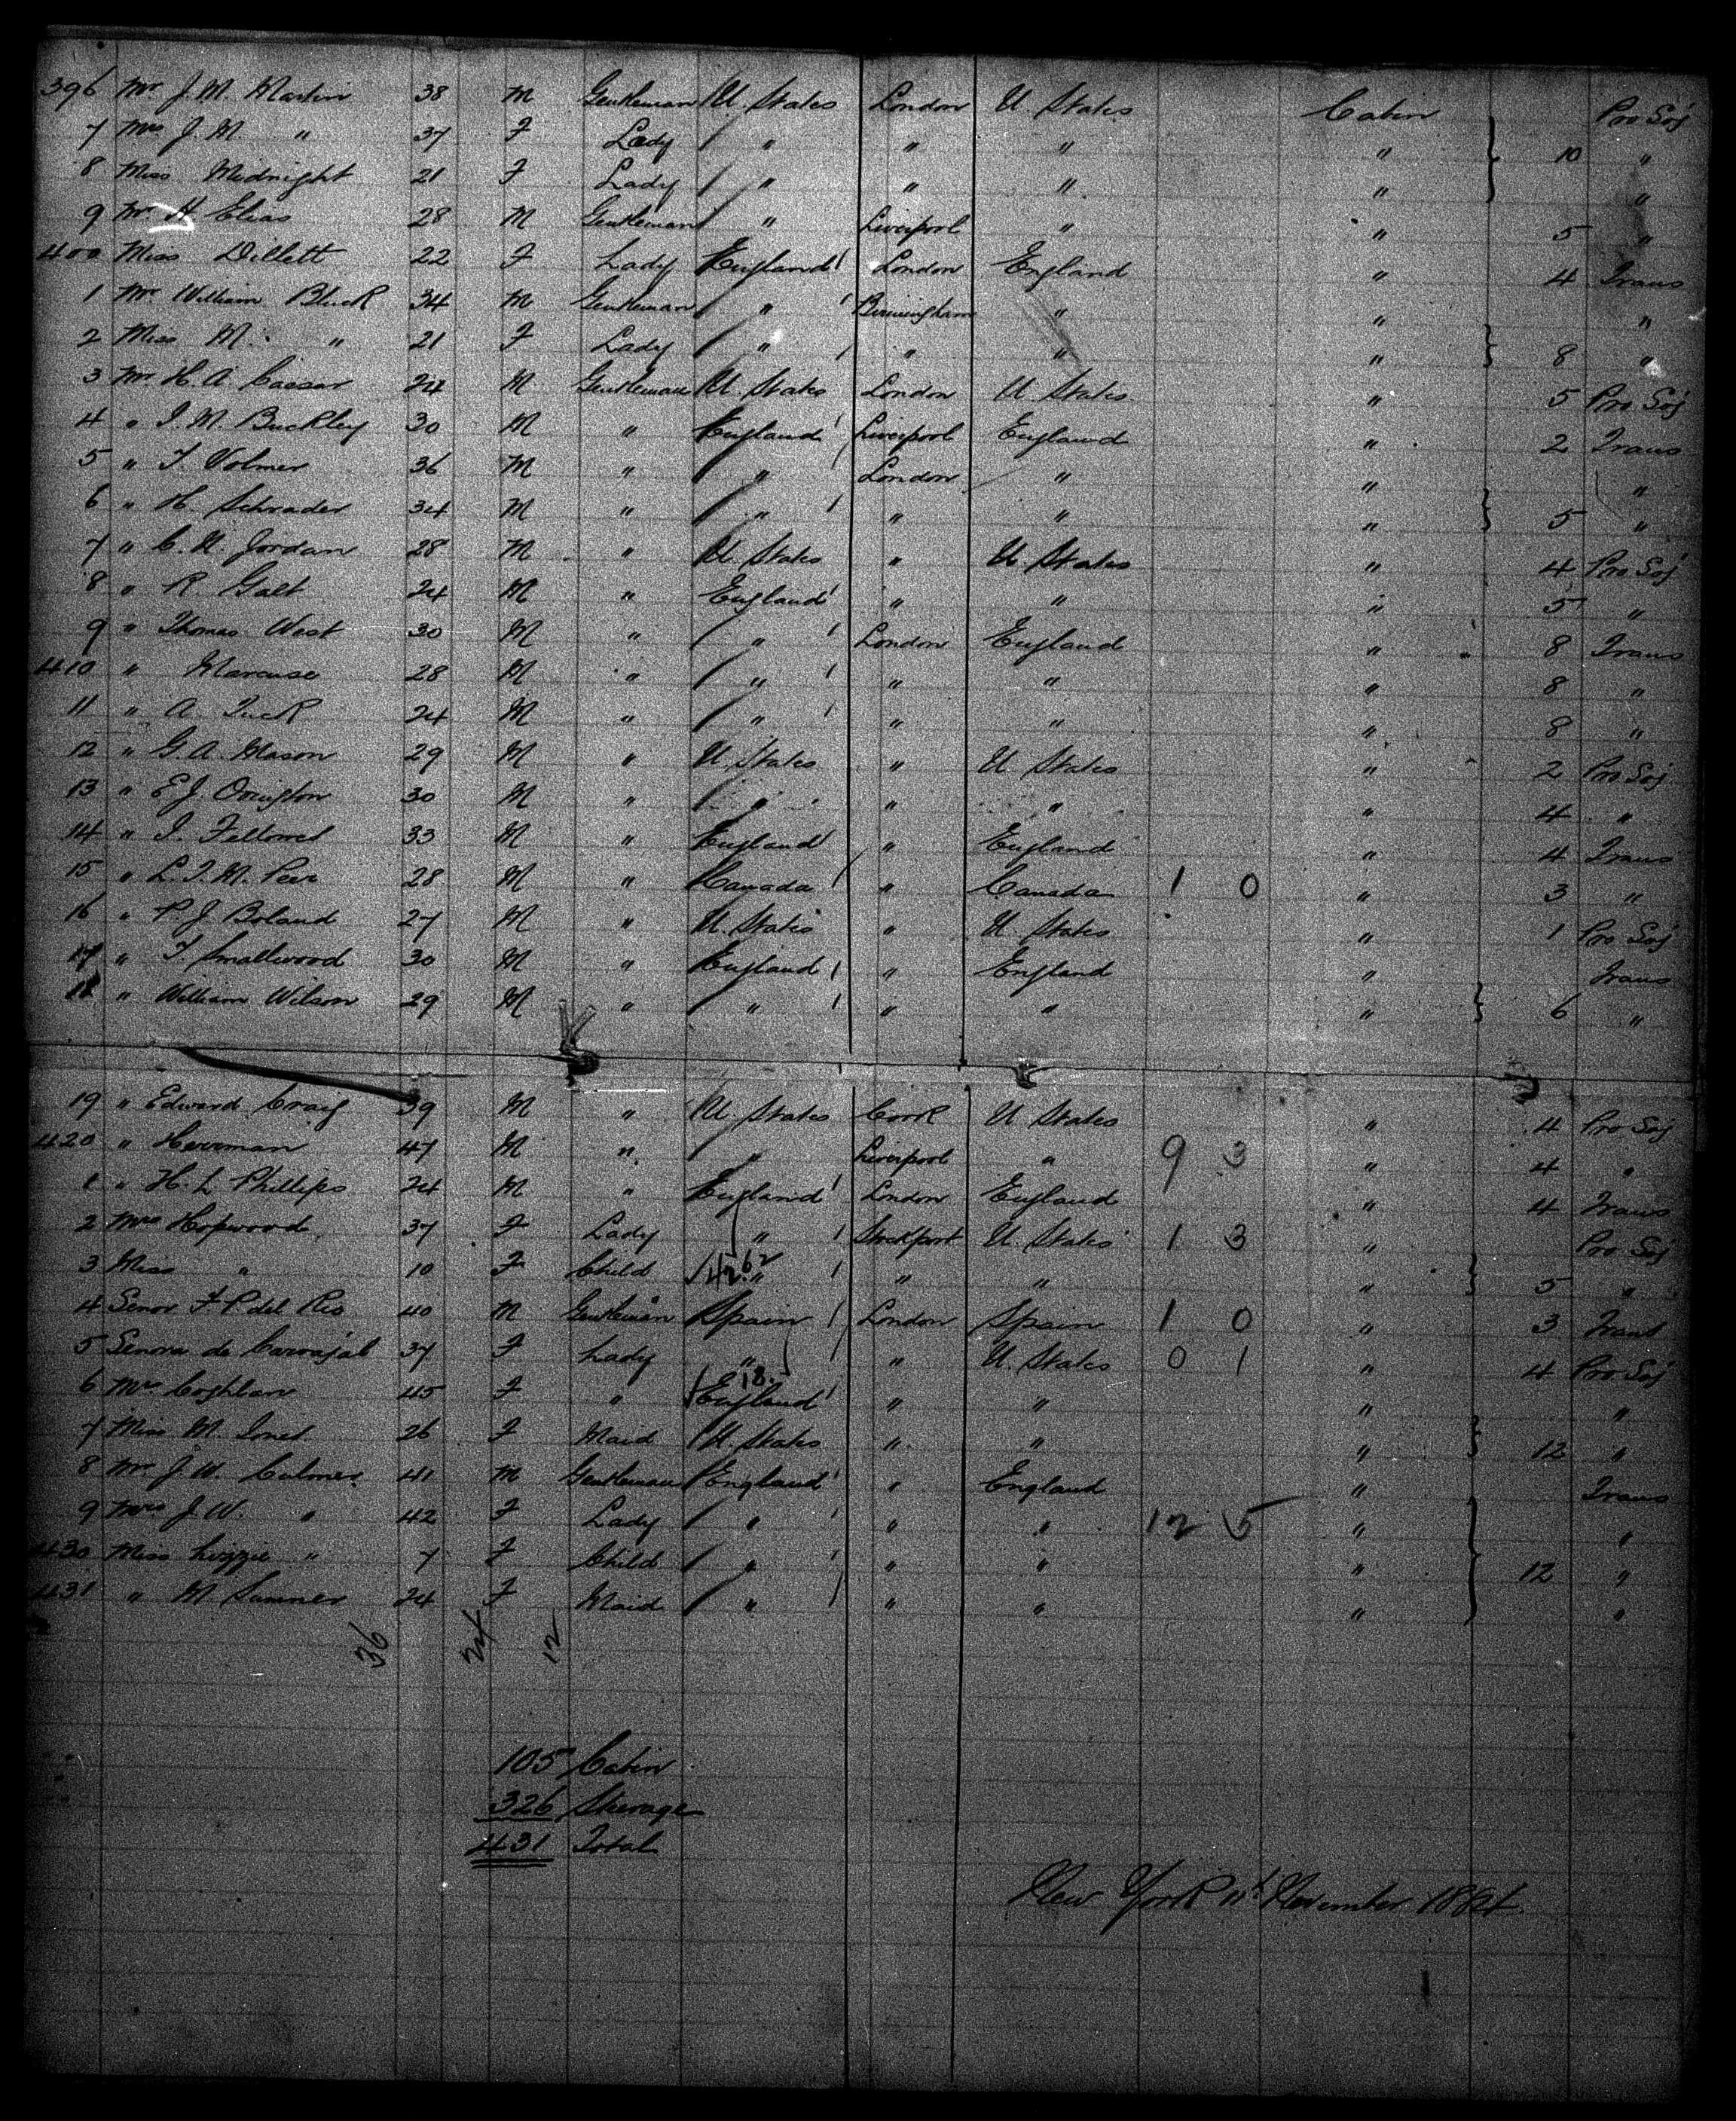 396 Mr J. M. Martin 38 M Gentleman U. States London U States Cabin Pro Soj
7 Mrs J. M. " 37 F Lady " " " " 10 "
8 Miss Midnight 21 F Lady " " " " "
9 Mr H. Elias 28 M Gentleman " Liverpool " " 5 "
400 Miss Dillett 22 F Lady England London England " 4 Trans
1 Mr William Bluck 34 M Gentleman " Birmingham " " "
2 Miss M. " 21 F Lady " " " " 8 "
3 Mr H. A. Caesar 24 M Gentleman U. States London U. States " 5 Pro Soj
4 " J. M. Buckley 30 M " England Liverpool England " 2 Trans
5 " T. Volmer 36 M " " London " " "
6 " H. Schrader 34 M " " " " " 5 "
7 " C. N. Jordan 28 M " U. States " U. States " 4 Pro Soj
8 " R. Galt 24 M " England " " " 5 "
9 " Thomas West 30 M " " London England " 8 Trans
410 " Marcuse 28 M " " " " " 8 "
11 " A. Tuck 24 M " " " " " 8 "
12 " G. A. Mason 29 M " U. States " U. States " 2 Pro Soj
13 " E. J. Ovington 30 M " " " " " 4 "
14 " I. Fellows 33 M " England " England " 4 Trans
15 " L. T. M. Peer 28 M " Canada " Canada 1 0 " 3 "
16 " P. J. Boland 27 M " U. States " U. States " 1 Pro Soj
17 " T. Smallwood 30 M " England " England " Trans
18 " William Wilson 29 M " " " " " 6 "
19 " Edward Craig 39 M " U. States Cork U. States " 4 Pro Soj
420 " Herrman 47 M " " Liverpool " 9 3 " 4 "
1 " H. L. Phillips 24 M " England London England " 4 Trans
2 Mrs Hopwood 37 F Lady " Stockport U. States 1 3 " Pro Soj
3 Miss " 10 F Child 4262 " " " " 5 "
4 Senor F. P. del Rio 40 M Gentleman Spain London Spain 1 0 " 3 Trans
5 Senora de Carvajal 37 F Lady " " U. States 0 1 " 4 Pro Soj
6 Mrs Coghlan 45 F " 18. England " " " "
7 Miss M. Jones 26 F Maid U. States " " " 12 "
8 Mr J. W. Culmer 41 M Gentleman England " England " Trans
9 Mrs J. W. " 42 F Lady " " " 12 5 " "
430 Miss Lizzie " 7 F Child " " " " 12 "
431 " M Sumner 24 F Maid " " " " "
36 24 12
105 Cabin
326 Steerage
431 Total
New York 11th November 1884.